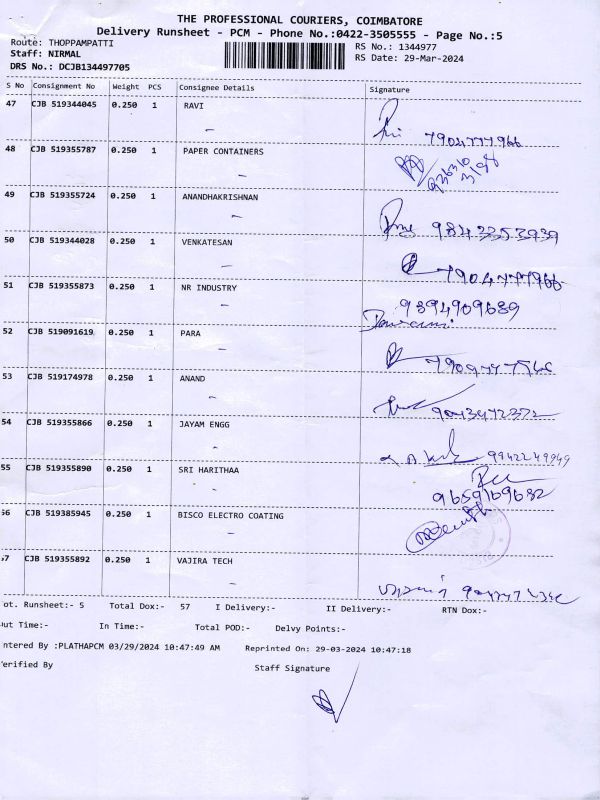 THE PROFESSIONAL COURIERS, COIMBATORE
Delivery Runsheet - PCM - Phone No.:0422-3505555 - Page No.:5
Route: THOPPAMPATTI
RS No.: 1344977
Staff: NIRMAL
RS Date: 29-Mar-2024
DRS No.: DCJB134497705
S No Consignment No Weight PCS Consignee Details Signature
47 CJB 519344045 0.250 1 RAVI
7904777966
48 CJB 519355787 0.250 1 PAPER CONTAINERS
49 CJB 519355724 0.250 1 ANANDHAKRISHNAN
9842253939
50 CJB 519344028 0.250 1 VENKATESAN
7904777966
51 CJB 519355873 0.250 1 NR INDUSTRY
9894909689
52 CJB 519091619 0.250 1 PARA
53 CJB 519174978 0.250 1 ANAND
54 CJB 519355866 0.250 1 JAYAM ENGG
9942249949
55 CJB 519355890 0.250 1 SRI HARITHAA
9659169682
56 CJB 519385945 0.250 1 BISCO ELECTRO COATING
57 CJB 519355892 0.250 1 VAJIRA TECH
ot. Runsheet:- 5 Total Dox:- 57 I Delivery:- II Delivery:- RTN Dox:-
ut Time:- In Time:- Total POD:- Delvy Points:-
ntered By :PLATHAPCM 03/29/2024 10:47:49 AM Reprinted On: 29-03-2024 10:47:18
erified By Staff Signature